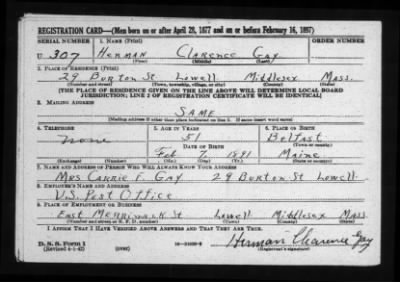 REGISTRATION CARD—(Men born on or after April 28, 1877 and on or before February 16, 1897)
SERIAL NUMBER 1. NAME (Print) ORDER NUMBER
U 307 HERMAN Clarence Gay
(First) (Middle) (Last)
2. PLACE OF RESIDENCE (Print)
29 Burton St Lowell Middlesex Mass.
(Number and street) (Town, township, village, or city) (County) (State)
[THE PLACE OF RESIDENCE GIVEN ON THE LINE ABOVE WILL DETERMINE LOCAL BOARD
JURISDICTION; LINE 2 OF REGISTRATION CERTIFICATE WILL BE IDENTICAL]
3. MAILING ADDRESS
SAME
[Mailing address if other than place indicated on line 2. If same insert word same]
4. TELEPHONE 5. AGE IN YEARS 6. PLACE OF BIRTH
none 51 Belfast
DATE OF BIRTH (Town or county)
Feb 7 1891 Maine
(Exchange) (Number) (Mo.) (Day) (Yr.) (State or country)
7. NAME AND ADDRESS OF PERSON WHO WILL ALWAYS KNOW YOUR ADDRESS
MRS CARRIE F. GAY 29 Burton St Lowell
8. EMPLOYER'S NAME AND ADDRESS
U.S. Post Office
9. PLACE OF EMPLOYMENT OR BUSINESS
EAST MERRIMACK St Lowell Middlesex Mass
(Number and street or R. F. D. number) (Town) (County) (State)
I AFFIRM THAT I HAVE VERIFIED ABOVE ANSWERS AND THAT THEY ARE TRUE.
D. S. S. Form 1
(Revised 4-1-42) (over) Herman Clarence Gay
(Registrant's signature)